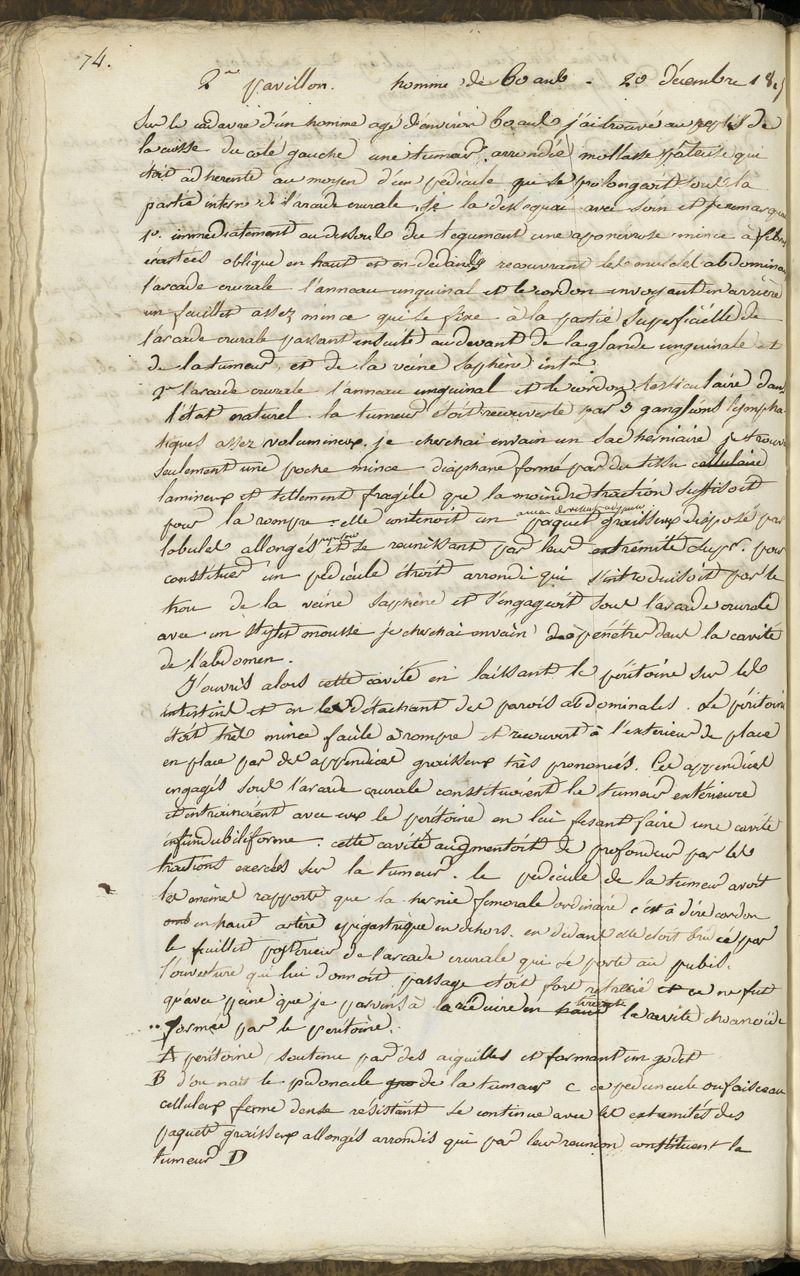 74.
2me pavillon. homme de 60 ans - 20 décembre
Sur le cadavre d'un homme agé d'environ 60 ans j'ai trouvé au de
la cuisse du coté gauche une tumeur arrondie mollasse pateuse qui
étoit adherente au moyen d'un pédicule qui se prolongeoit sous la
partie interne de l'arcade crurale. je la dissequai avec soin et je remarquai
1o. immédiatement audessous du tegument une aponevrose mince à fibres
écartées oblique en haut et en dedans recouvrant les muscles abdominaux
l'arcade crurale l'anneau unguinal et le cordon envoyant en arrière
un feuillet assez mince qui se fixe à la partie superficielle de
l'arcade crurale passant ensuite au devant de la glande unguinale et
de la tumeur et de la veine saphène intne
2o l'arcade crurale l'anneau unguinal et le cordon testiculaire dans
l'état naturel. la tumeur étoit recouverte par 3 ganglions lympha-
tiques assez volumineux. je cherchai envain un sac herniaire je trouvai
seulement une poche mince diaphane formé par du tissu cellulaire
lamineux et tellement fragile que la moindre traction suffisoit
pour la rompre : elle contenoit un paquet graisseux disposé par
lobules allongés et se reunissant par leur extremité supr. pour
constituer un pédicule étroit arrondi qui s'introduisoit par le
trou de la veine saphène et s'engageoit sous l'arcade crurale
avec un stylet mousse je cherchai envain à pénétrer dans la cavité
de l'abdomen.
J'ouvris alors cette cavité en laissant le péritoine sur les
intestins et en le détachant des parois abdominales. Le péritoine
étoit très mince facile à rompre et recouvert à l'exterieur de place
en place par des appendices graisseux très prononcés. Ces appendices
engagés sous l'arcade crurale constituoient la tumeur extérieure
et entrainoient avec eux le peritoine en lui fesant faire une cavité
infundubiliforme. cette cavité augmentoit de profondeur par les
tractions exercées sur la tumeur. le pédicule de la tumeur avoit
les mêmes rapports que la hernie femorale ordinaire c'est à dire cordon
en haut artère epigastrique en dehors. en dedans elle étoit bridée par
le feuillet posterieur de l'arcade crurale qui se porte au pubis.
l'ouverture qui lui donnoit passage étoit fort retrecie et ce ne fut
qu'avec peine que je parvins à la réduire en la cavité
formée par le peritoine.
A peritoine soutenu par des aiguilles et formant un godet
B d'ou nait le pedoncule de la tumeur C ce peduncule ou faisceau
celluleux ferme dense résistant se continue avec les extremités des
paquets graisseux allongés arrondis qui par leur reunion constituent la
tumeur D